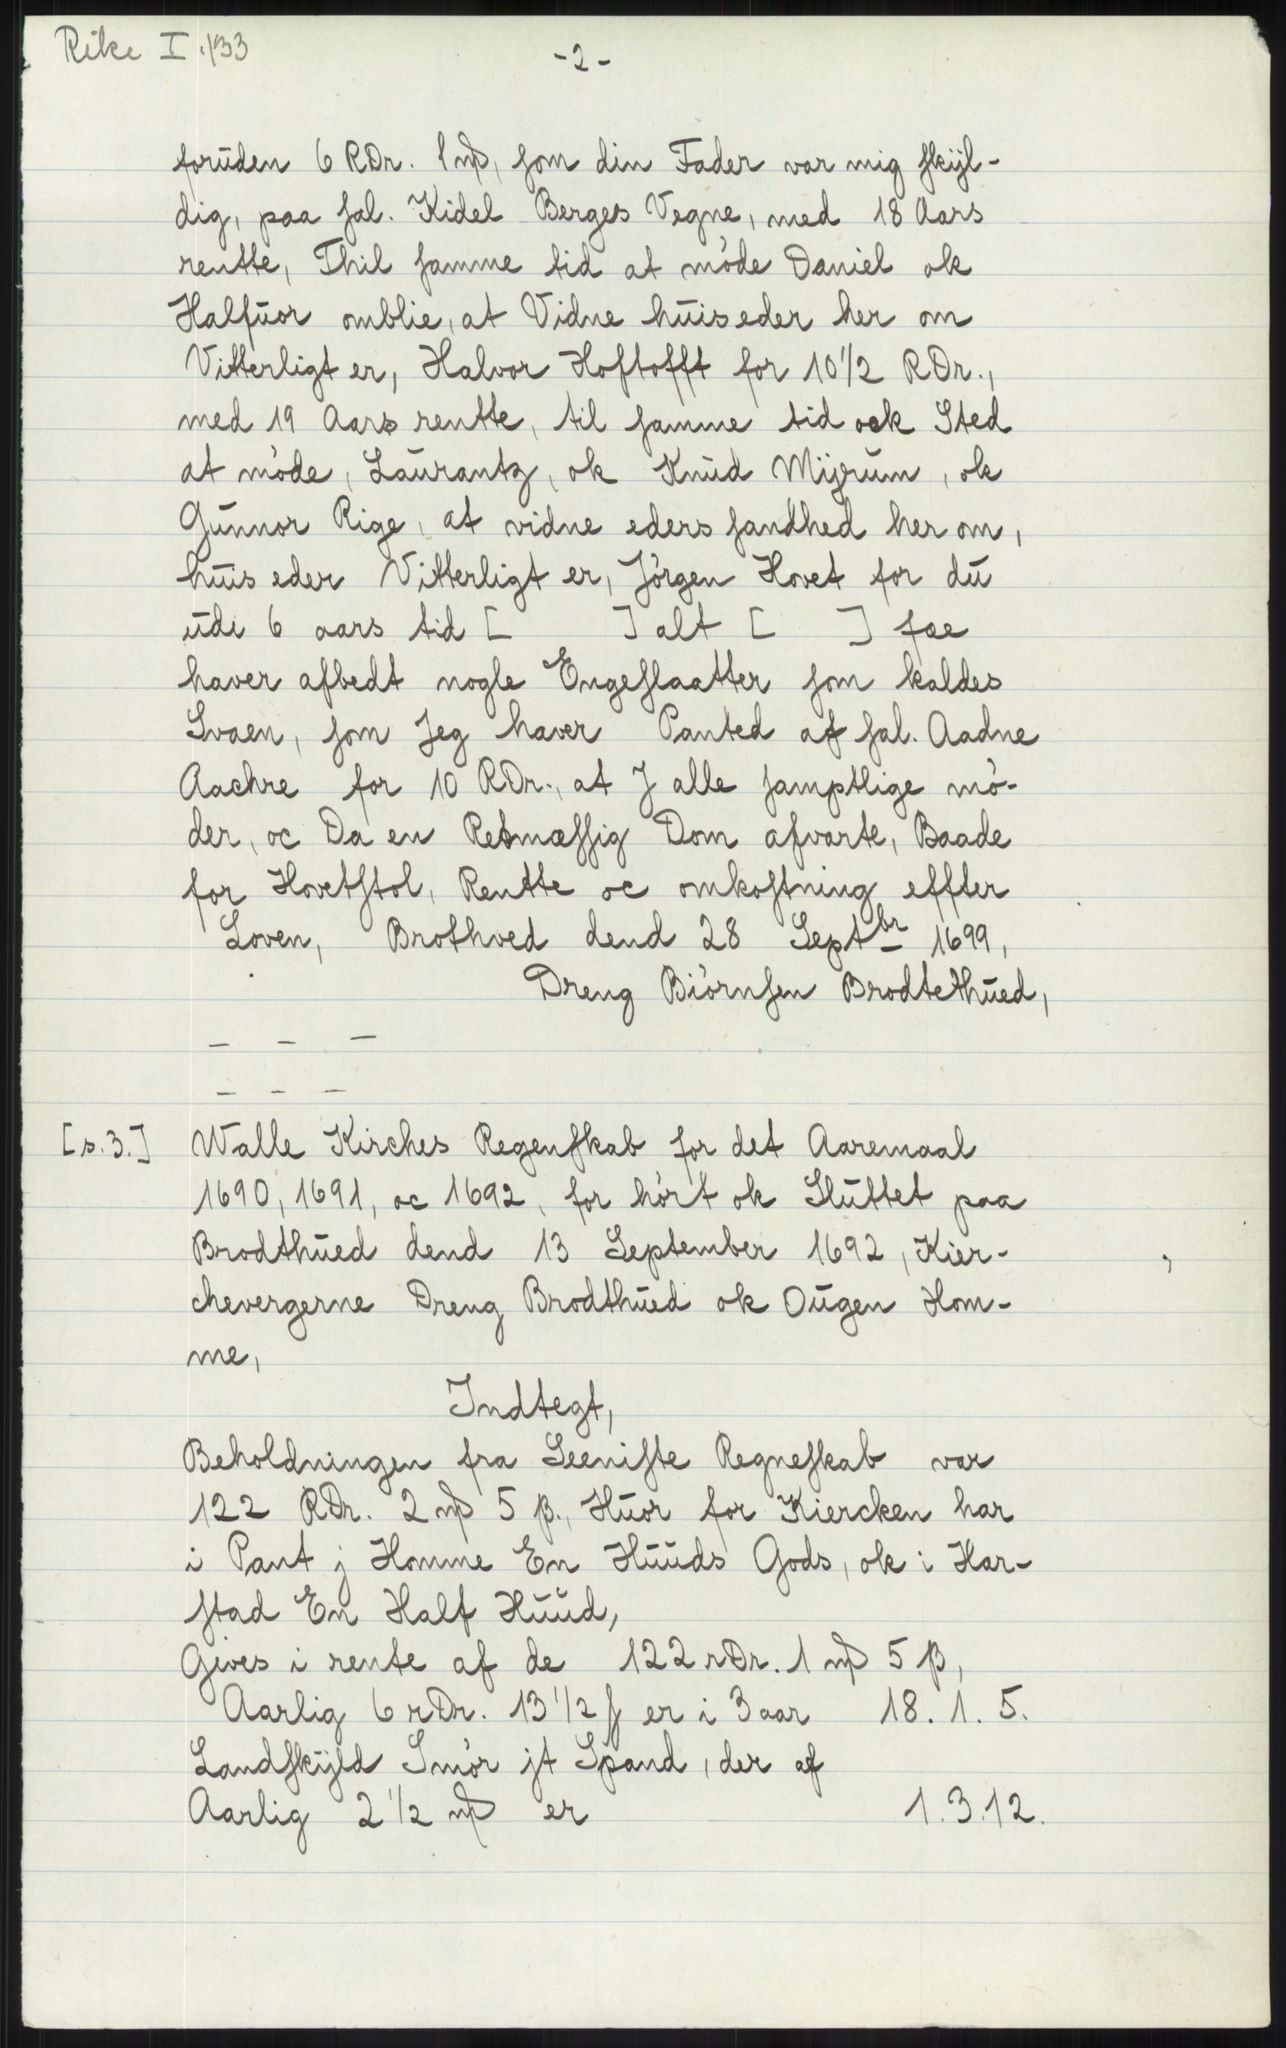 Rike I 133
-2-
foruden 6 RDr. 1 mþ, som din Fader var mig skÿl-
dig, paa sal. Kidel Berges Vegne, med 18 Aars
rentte, Thil samme tid at möde Daniel ok
Halfuor omblie, at Vidne huis eder her om
Vitterligt er, Halvor Hoftofft for 10 1/2 RDr.,
med 19 Aars rentte, til samme tid ock Sted
at möde, Laurantz, ok Knud Mÿrum, ok
Gunnor Rige, at vidne eders sandhed her om,
huis eder Vitterligt er, Jörgen Hovet for du
udi 6 aars tid [ ] alt [ ] fae
haver afbedt nogle Engeslaatter som kaldes
Svaen, som Jeg haver Panted af sal. Aadne
Aachre for 10 RDr., at J alle samptlige mö-
der, oc Da en Retmæssig Dom afvarte, Baade
for Hovetstol, Rentte oc omkostning effter
Loven, Brothved dend 28 Septbr 1699,
Dreng Biörnsen Brodtethued,
— — —
— — —
[s. 3.] Walle Kirches Regenskab for det Aaremaal
1690, 1691, oc 1692, for hört ok Sluttet paa
Brodthued dend 13 September 1692, Kier-
chevergerne Dreng Brodthued ok Ougen Hom-
me,
Indtegt,
Beholdningen fra Seeniste Regneskab var
122 RDr. 2 mþ 5 β., Huor for Kiercken har
i Pant j Homme En Huuds Gods, ok i Har-
stad En Half Huud,
Gives i rente af de 122 rDr. 1 mþ 5 β,
Aarlig 6 rDr. 13 1/2 β er i 3 aar 18. 1. 5.
Landskÿld Smör jt Spand, der af
Aarlig 2 1/2 mþ er 1. 3. 12.